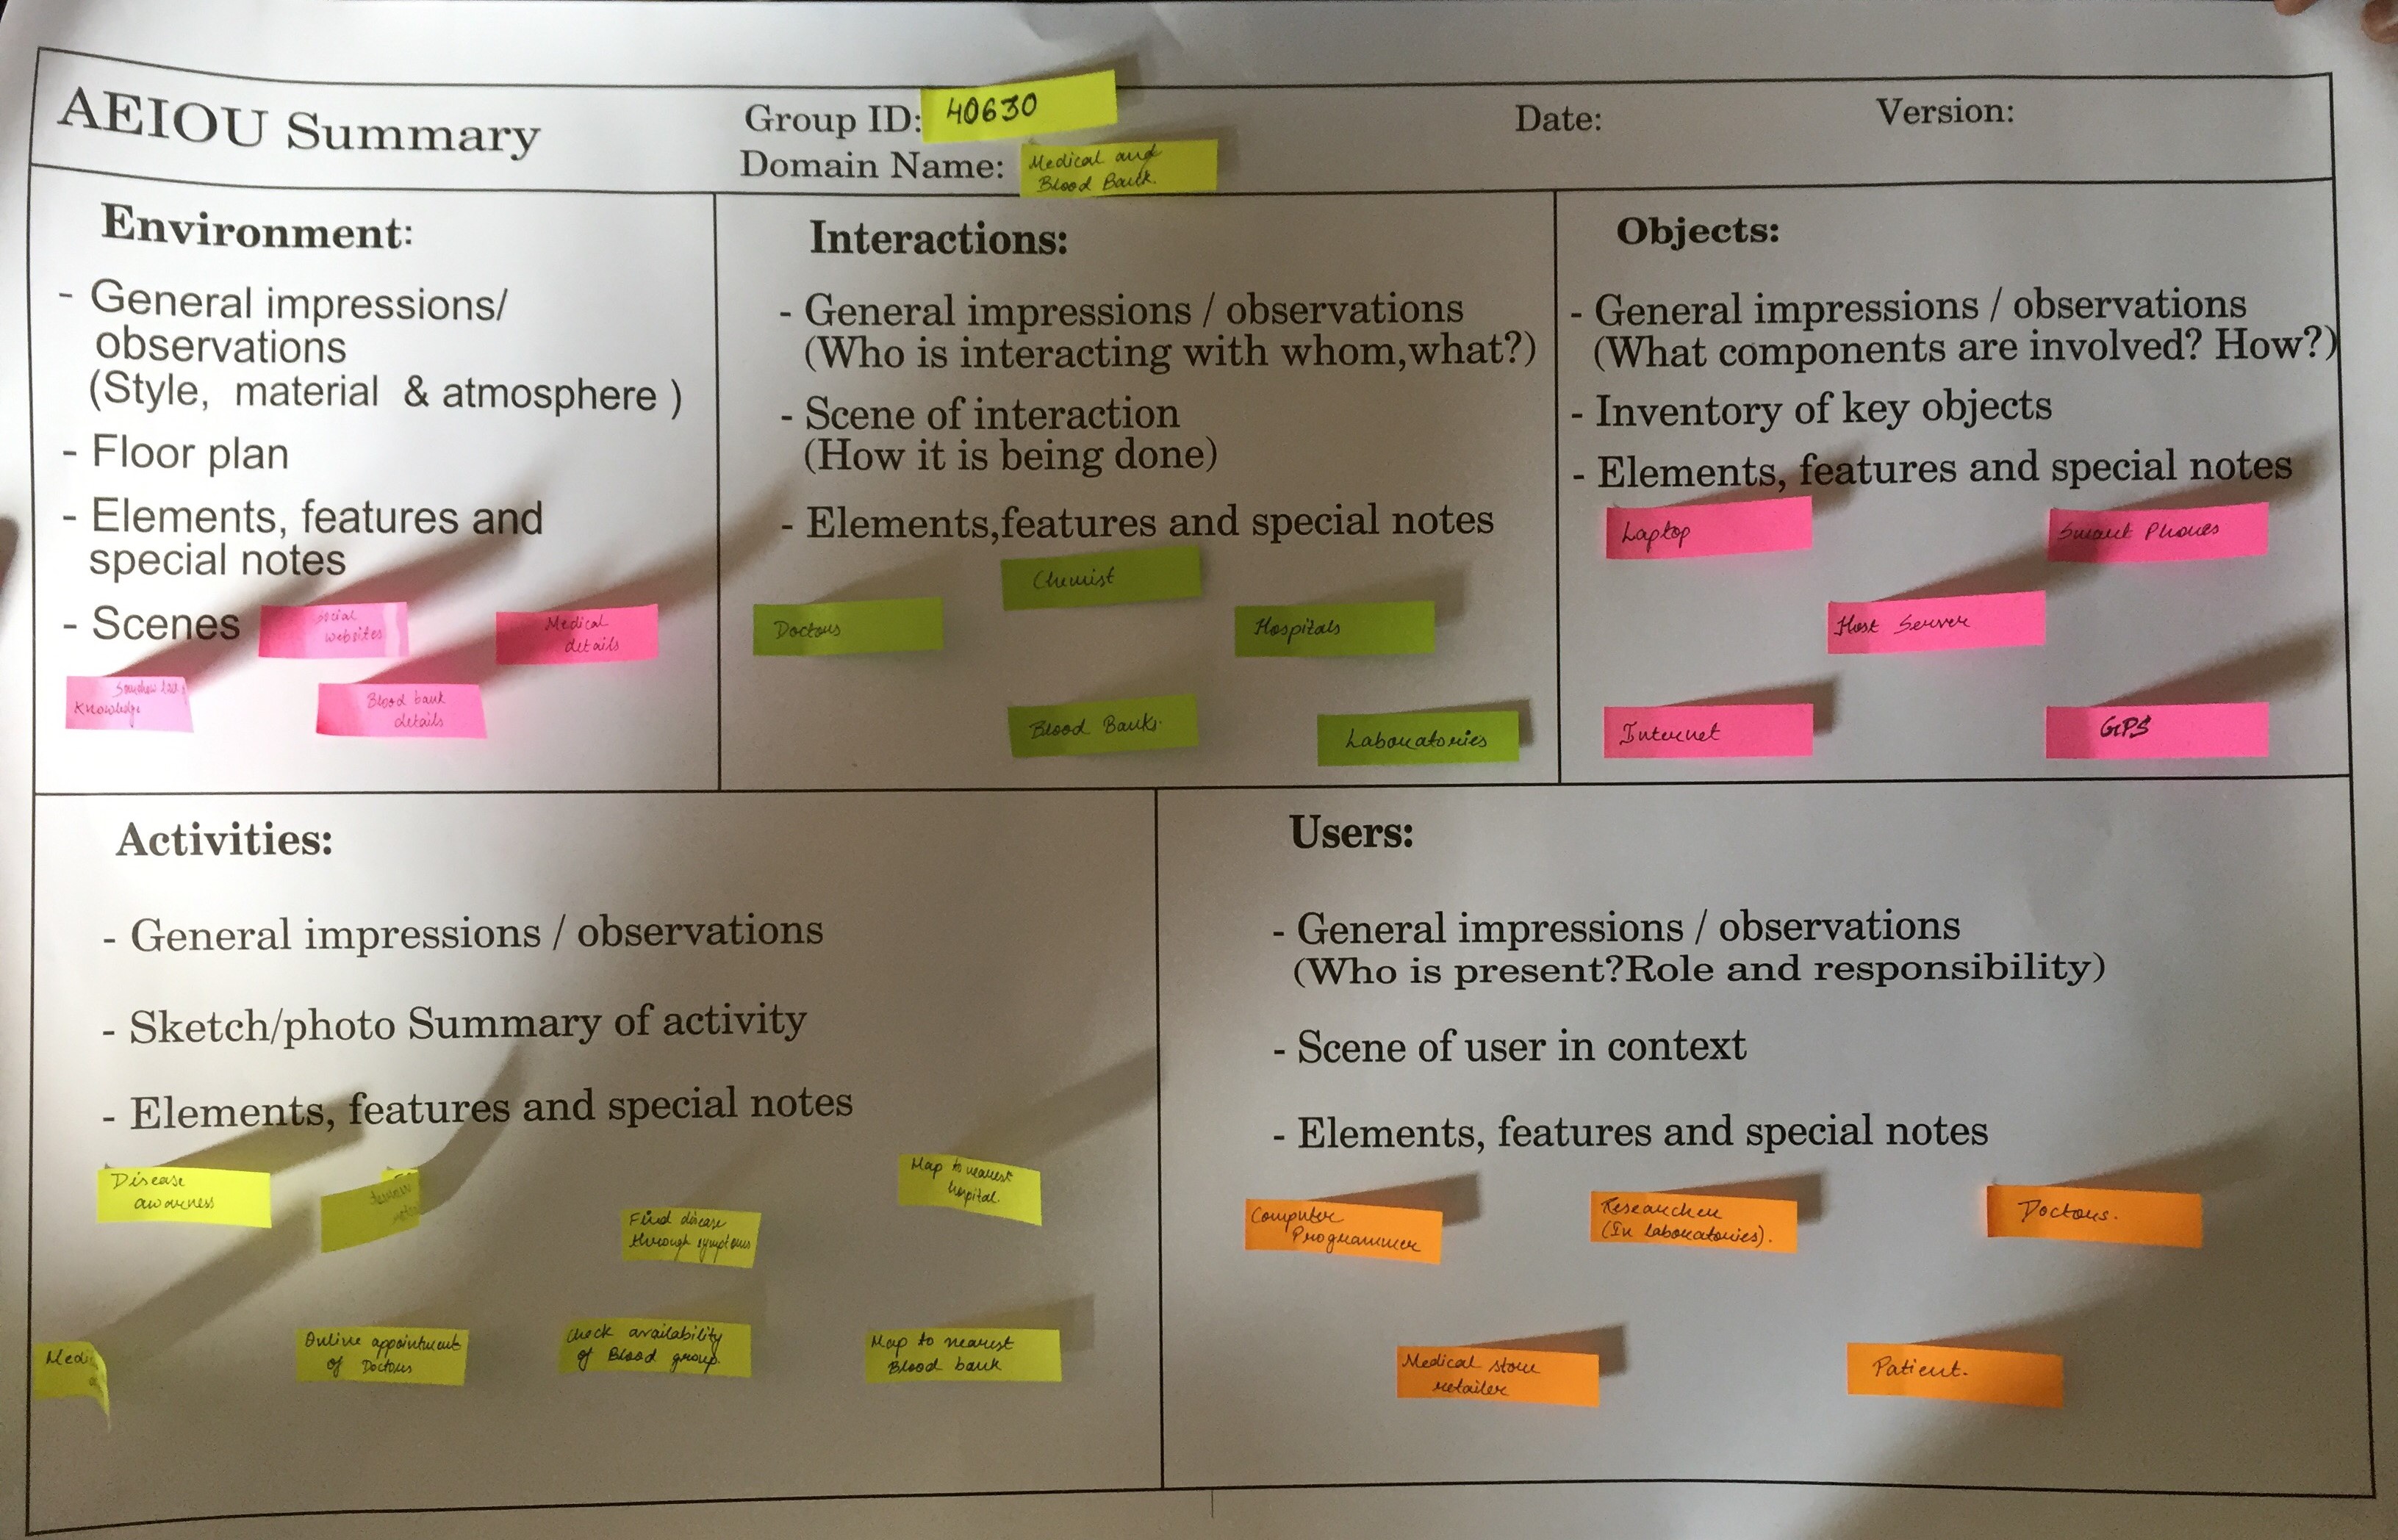 AEIOU Summary
Group ID: 40630
Domain Name: Medical and
Blood Bank.
Date:
Version:
Environment:
- General impressions/
observations
(Style, material & atmosphere )
- Floor plan
- Elements, features and
special notes
- Scenes
social
websites
Medical
details
Knowledge
Blood bank
details
Interactions:
- General impressions / observations
(Who is interacting with whom,what?)
- Scene of interaction
(How it is being done)
- Elements,features and special notes
Chemist
Doctors
Hospitals
Blood Banks.
Laboratories
Objects:
- General impressions / observations
(What components are involved? How?)
- Inventory of key objects
- Elements, features and special notes
Laptop
Smart Phones
Host Server
Internet
GPS
Activities:
- General impressions / observations
- Sketch/photo Summary of activity
- Elements, features and special notes
Disease
awarness
Find disease
through symptoms
Map to nearest
hospital.
Online appointment
of Doctors
Check availability
of Blood group.
Map to nearest
Blood bank
Users:
- General impressions / observations
(Who is present?Role and responsibility)
- Scene of user in context
- Elements, features and special notes
Computer
Programmer
Researcher
(In laboratories).
Doctors.
Medical store
retailer
Patient.